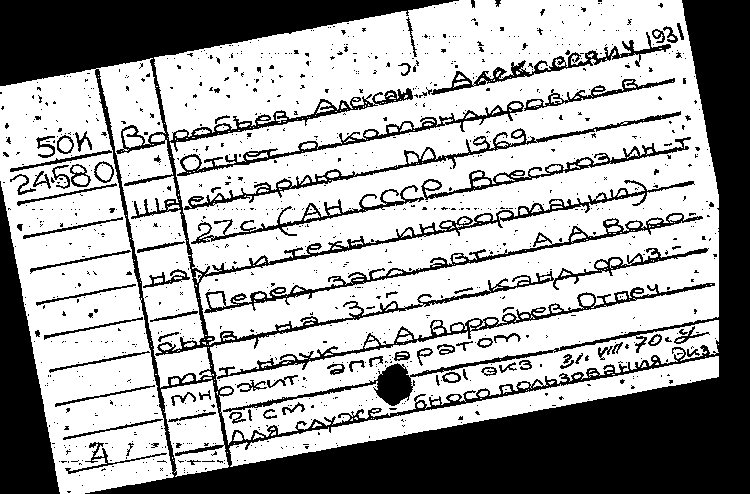 Воробьев, Алексей Алексеевич, 1931
50К
24580
Отчет о командировке в
Швейцарию. М., 1969.
27 с. (АН СССР. Всесоюз. ин-т
науч. и техн. информации)
Перед загл. авт.: А.А. Воро-
бьев; на 3-й с. - канд. физ.-
мат. наук А.А. Воробьев. Отпеч.
множит. аппаратом.
21 см. 101 экз. 31.VIII.70.
Для служебного пользования. Экз.